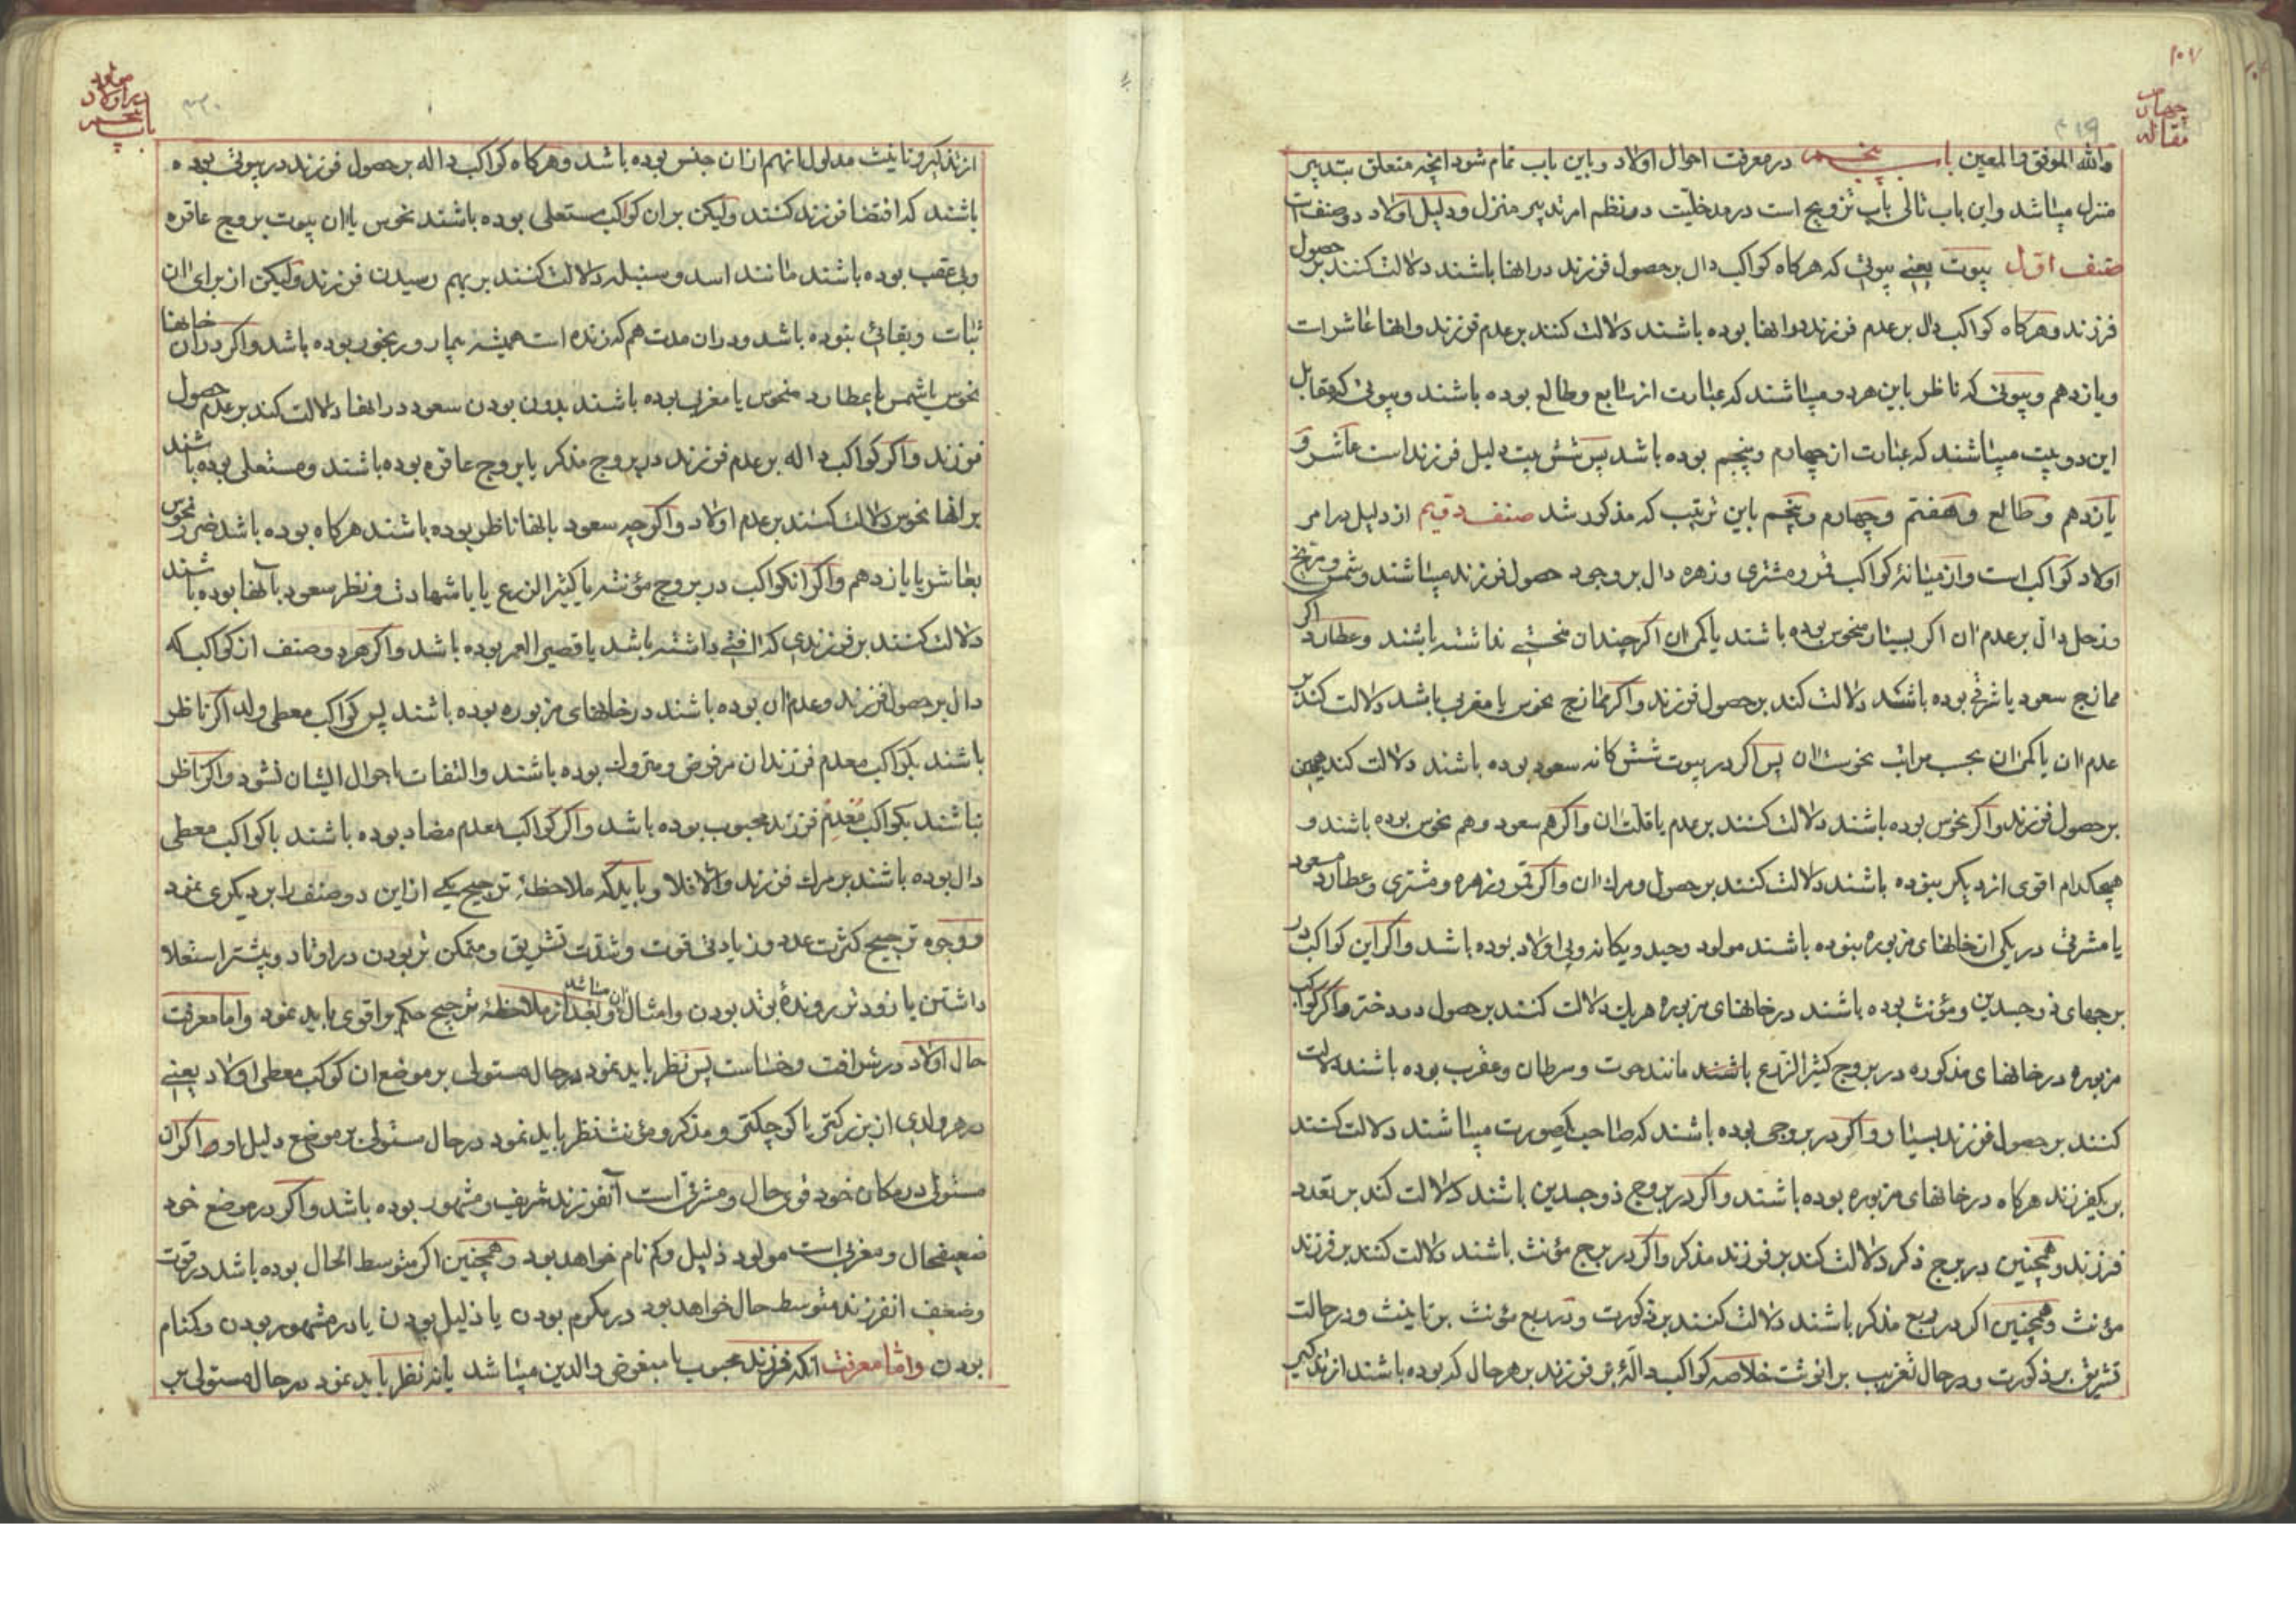 ۱۰۷
مقاله
چهارم
۲۱۹
والله الموفق والمعین باب پنجم در معرفت احوال اولاد و باین باب تمام شود آنچه متعلق بتدبیر
منزل میباشد واین باب تالی باب تزویج است در مدخلیّت در نظم امر تدبیر منزل ودلیل اولاد دو صنف است
صنف اول بیوت یعنی بیوتی که هرکاه کواکب دال بر حصول فرزند در انها باشند دلالت کنند بر حصول
فرزند وهرکاه کواکب دال بر عدم فرزند در انها بوده باشند دلالت کنند بر عدم فرزند وانها عاشر است
ویازدهم وبیوتی که ناظر باین هر دو میباشند که عبارت از سابع وطالع بوده باشند وبیوتی که مقابل
این دو بیت میباشند که عبارت از چهارم وپنجم بوده باشد پس شش بیت دلیل فرزند است عاشر و
یازدهم وطالع وهفتم وچهارم وپنجم باین ترتیب که مذکور شد صنف دویم از دلیل در امر
اولاد کواکب است واز میانهٔ کواکب قمر ومشتری وزهره دال بر وجود حصول فرزند میباشند وشمس ومریخ
وزحل دال بر عدم ان اکر بسیار منحوس بوده باشند یا کمی ان اکر چندان منحستی نداشته باشند وعطارد اکر
ممازج سعود یا شرقی بوده باشد دلالت کند بر حصول فرزند واکر ممازج نحوس یا مغربی باشد دلالت کند بر
عدم ان یا کمی ان بحسب مراتب نحوست ان پس اکر در بیوت شش کانه سعود بوده باشند دلالت کند همین
بر حصول فرزند واکر نحوس بوده باشند دلالت کنند بر عدم یا قلت ان واکر هم سعود وهم نحوس بوده باشند و
هیچکدام اقوی از دیکر نبوده باشند دلالت کنند بر حصول ومرك ان واکر قمر وزهره ومشتری وعطارد مسعود
یا مشرقی در یکی از خانهای مزبوره نبوده باشند مولود وحید ویکانه وبی اولاد بوده باشد واکر این کواکب در
برجهای ذو جسدین ومؤنث بوده باشند در خانهای مزبوره هر یك دلالت کنند بر حصول دو دختر واکر کواکب
مزبوره در خانهای مذکوره در بروج کثیر الزرع باشند مانند حوت وسرطان وعقرب بوده باشند دلالت
کنند بر حصول فرزند بسیار واکر در بروجی بوده باشند که صاحب یکصورت میباشند دلالت کنند
بر یکفرزند هرکاه در خانهای مزبوره بوده باشند واکر در بروج ذو جسدین باشند دلالت کند بر تعدد
فرزند وهمچنین در برج ذکر دلالت کند بر فرزند مذکر واکر در برج مؤنث باشند دلالت کنند بر فرزند
مؤنث وهمچنین اکر در ربع مذکر باشند دلالت کنند بر ذکورت ودر ربع مؤنث بر تانیث ودر حالت
تشریق بر ذکورت ودر حال تغریب بر انوثت خلاصه کواکب دالهٔ بر فرزند بر هر حال که بوده باشند از تذکیر
باب پنجم
در اولاد
مولود
۲۲۰
از تذکیر وتانیث مدلول انهم از ان جنس بوده باشد وهرکاه کواکب داله بر حصول فرزند در بیوتی بوده
باشند که اقتضا فرزند کنند ولیکن بر ان کواکب مستعلی بوده باشند نحوس یا ان بیوت بروج عاقره
وبی عقب بوده باشند مانند اسد وسنبله دلالت کنند بر بهم رسیدن فرزند ولیکن از برای ان
ثبات وبقائی نبوده باشد ودر ان مدت هم که زنده است همیشه بیمار ورنجور بوده باشد واکر در ان خانها
نحوس باشمس یا بعطارد منحوس یا مغربی بوده باشند بدون بودن سعود در انها دلالت کند بر عدم حصول
فرزند واکر کواکب داله بر عدم فرزند در بروج مذکر یا بروج عاقره بوده باشند ومستعلی بوده باشند
بر انها نحوس دلالت کنند بر عدم اولاد واکرچه سعود بانها ناظر بوده باشند هرکاه بوده باشد ضرر نحوس
بعاشر یا یازدهم واکر انکواکب در بروج مؤنثه یا کثیر الزرع یا باشهادت ونظر سعود بانها بوده باشند
دلالت کنند بر فرزندی که افتی داشته باشد یا قصیر العمر بوده باشد واکر هر دو صنف از کواکب که
دال بر حصول فرزند وعدم ان بوده باشند در خانهای مزبوره بوده باشند پس کواکب معطی ولد اکر ناظر
باشند بکواکب معدم فرزندان مرفوض ومتروك بوده باشند والتفات باحوال ایشان نشود واکر ناظر
نباشند بکواکب مُعدِم فرزند محبوب بوده باشد واکر کواکب معدم مضاد بوده باشند با کواکب معطی
دال بوده باشند بر مرك فرزند والا فلا وباید که ملاحظهٔ ترجیح یکی از این دو صنف را بر دیکری نمود
ووجوه ترجیح کثرت عدد وزیادتی قوت وشدّت تشریق ومتمکن تر بودن در اوتاد وبیشتر استعلا
داشتن یا زود تر روندهٔ بوتد بودن وامثال ان میباشد وبعد از ملاحظهٔ ترجیح حکم بر اقوی باید نمود واما معرفت
حال اولاد در شرافت وخساست پس نظر باید نمود در حال مستولی بر موضع ان کوکب معطی اولاد یعنی
در هر ولدی از بزرکتی یا کوچکتی ومذکر ومؤنث نظر باید نمود در حال مستولی بر موضع دلیل او واکر ان
مستولی در مکان خود قوی حال ومشرقی است آنفرزند شریف ومشهور بوده باشد واکر در موضع خود
ضعیفحال ومغربی است مولود ذلیل وکم نام خواهد بود وهمچنین اکر متوسط الحال بوده باشد در قوت
وضعف انفرزند متوسط حال خواهد بود در مکرم بودن یا ذلیل بودن یا در مشهور بودن وکمنام
بودن واما معرفت آنکه فرزند محبوب یا مبغوض والدین میباشد یا نه نظر باید نمود در حال مستولی بر